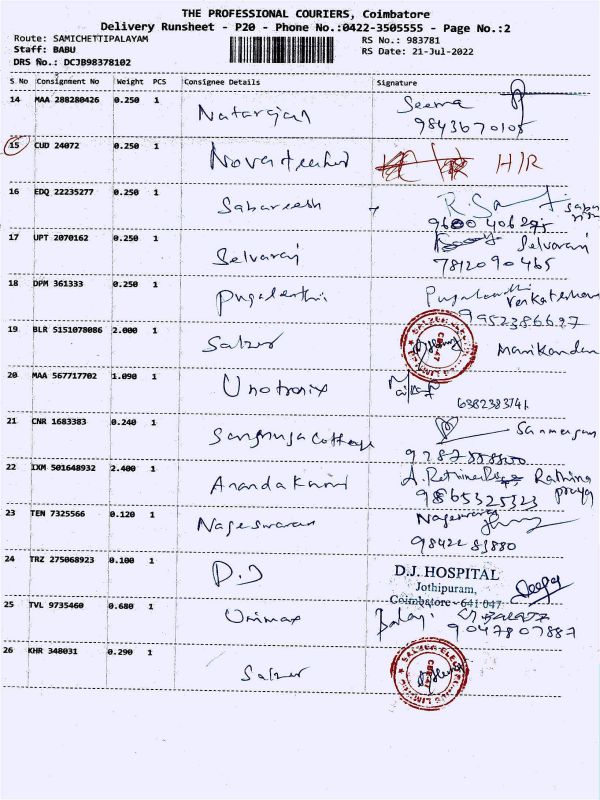 THE PROFESSIONAL COURIERS, Coimbatore
Delivery Runsheet - P20 - Phone No.:0422-3505555 - Page No.:2
Route: SAMICHETTIPALAYAM
RS No.: 983781
Staff: BABU
RS Date: 21-Jul-2022
DRS No.: DCJB98378102
S No Consignment No Weight PCS Consignee Details Signature
14 MAA 288280426 0.250 1 Natarajan Seema
9843670105
15 CUD 24072 0.250 1 H/R
16 EDQ 22235277 0.250 1 Sabareesh
17 UPT 2070162 0.250 1 Selvaraj Selvaraj
7812090465
18 DPM 361333 0.250 1 Pugalenthi
9952386627
19 BLR S151078086 2.000 1 Salzer Manikandan
20 MAA 567717702 1.090 1 Unotronix
6382383741
21 CNR 1683383 0.240 1
22 IXM 501648932 2.400 1 Rathina
9865325323 priya
23 TEN 7325566 0.120 1 Nageswaran
24 TRZ 275068923 0.100 1 D.J
D.J. HOSPITAL
Jothipuram,
Coimbatore - 641 047
25 TVL 9735460 0.680 1 Unimax Balaji
9047807887
26 KHR 348031 0.290 1 Salzer